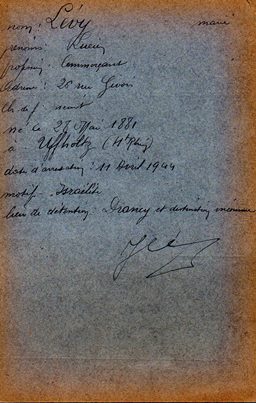 nom: Lévy marié
prénoms: Lucien
profession: Commerçant
adresse: 26 rue
né le 27 Mai 1881
à Uffholtz (Ht Rhin)
date d'arrestation: 11 Avril 1944
motif: Israélite
lieu de détention: Drancy et destination inconnue